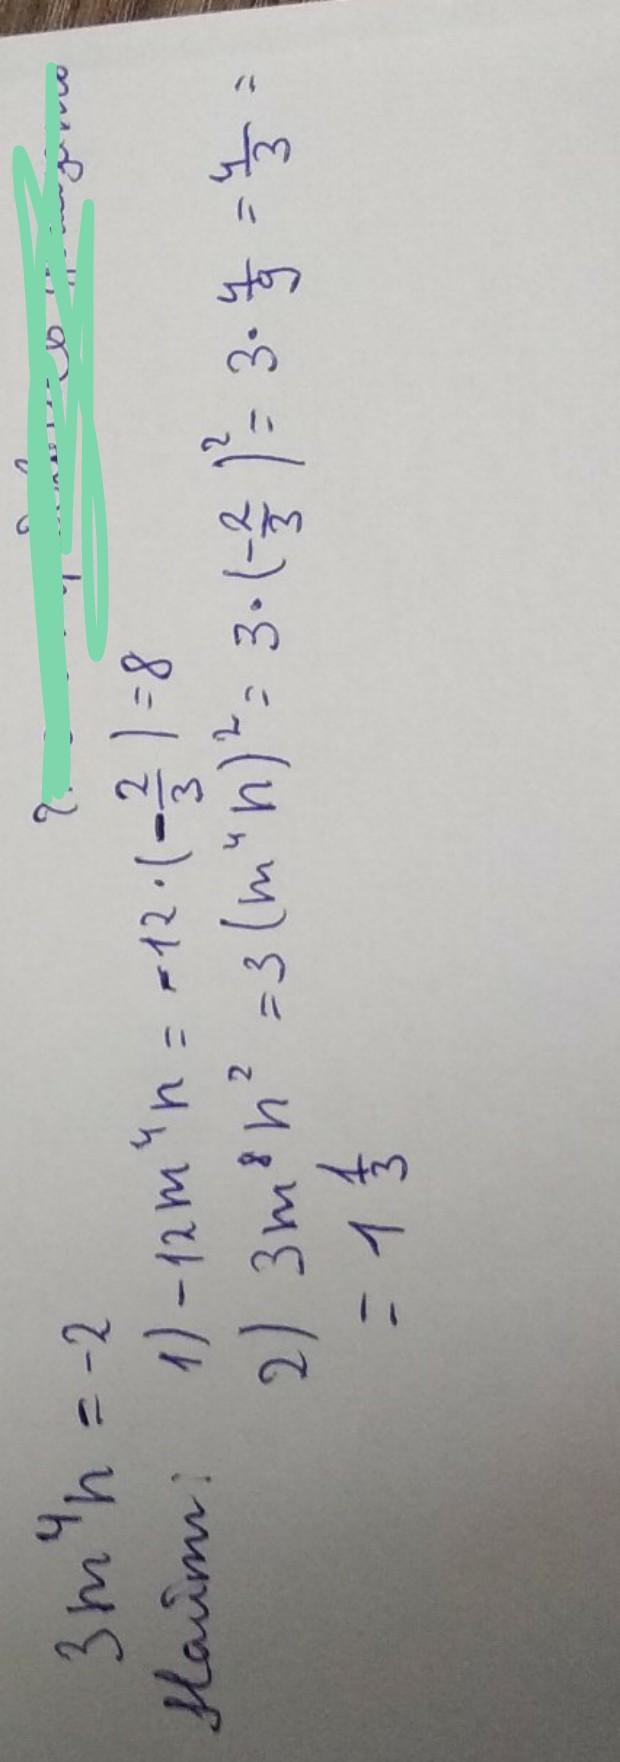 3m⁴n = -2
Найти: 1) -12m⁴n = -12·(-2/3) = 8
2) 3m⁸n² = 3(m⁴n)² = 3·(-2/3)² = 3·4/9 = 4/3 =
= 1 1/3